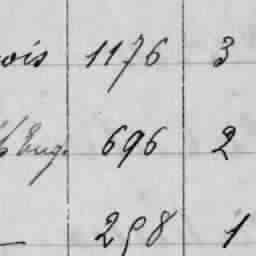 ois 1176 3
Eng. 696 2
298 1